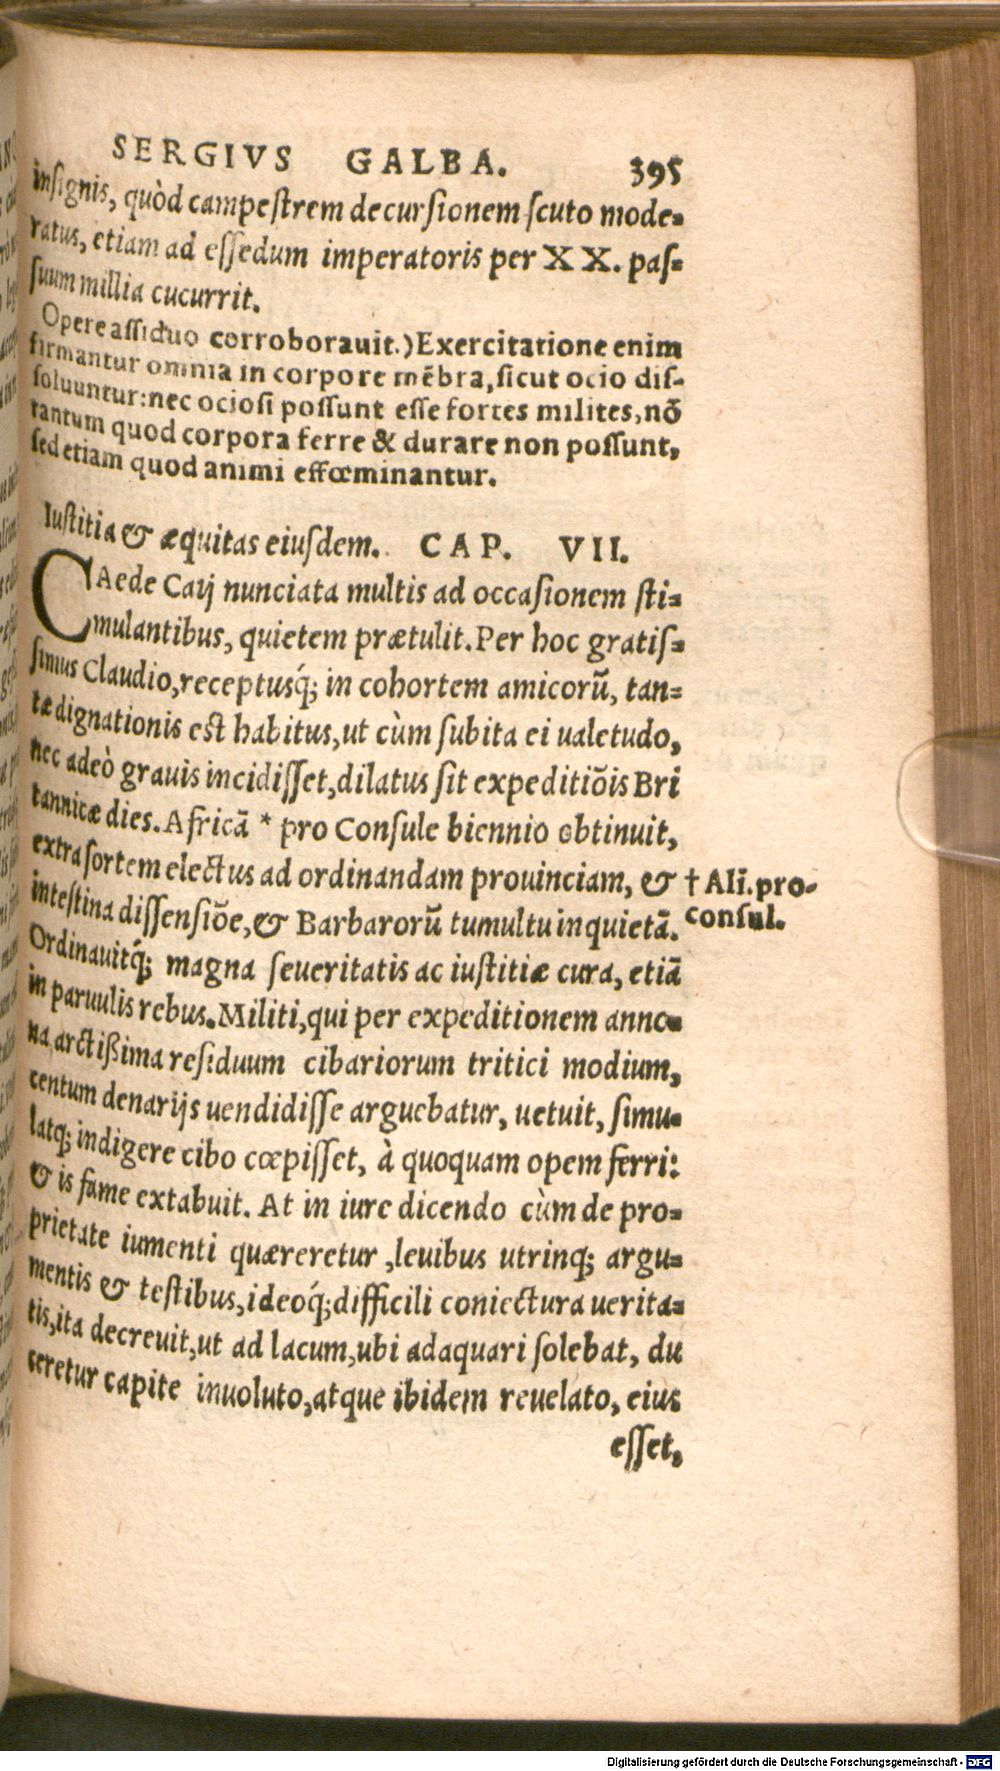 SERGIVS GALBA. 395
insignis, quòd campestrem decursionem scuto mode-
ratus, etiam ad essedum imperatoris per XX. pas-
suum millia cucurrit.
Opere assiduo corroborauit.) Exercitatione enim
firmantur omnia in corpore mēbra, sicut ocio dis-
soluuntur: nec ociosi possunt esse fortes milites, nō
tantum quod corpora ferre & durare non possunt,
sed etiam quod animi effœminantur.
Iustitia & æquitas eiusdem. CAP. VII.
CAede Caij nunciata multis ad occasionem sti-
mulantibus, quietem prætulit. Per hoc gratis-
simus Claudio, receptusq́; in cohortem amicorū, tan-
tæ dignationis est habitus, ut cùm subita ei ualetudo,
nec adeò grauis incidisset, dilatus sit expeditiōis Bri
tannicæ dies. Africā * pro Consule biennio obtinuit,
extra sortem electus ad ordinandam prouinciam, &
intestina dissensiōe, & Barbarorū tumultu inquietā.
† Alī. pro-
consul.
Ordinauitq́; magna seueritatis ac iustitiæ cura, etiā
in paruulis rebus. Militi, qui per expeditionem anno-
na arctißima residuum cibariorum tritici modium,
centum denarijs uendidisse arguebatur, uetuit, simu-
latq; indigere cibo cœpisset, à quoquam opem ferri:
& is fame extabuit. At in iure dicendo cùm de pro-
prietate iumenti quæreretur, leuibus utrinq; argu-
mentis & testibus, ideoq́; difficili coniectura uerita-
tis, ita decreuit, ut ad lacum, ubi adaquari solebat, du
ceretur capite inuoluto, atque ibidem reuelato, eius
esset,
Digitalisierung gefördert durch die Deutsche Forschungsgemeinschaft - DFG